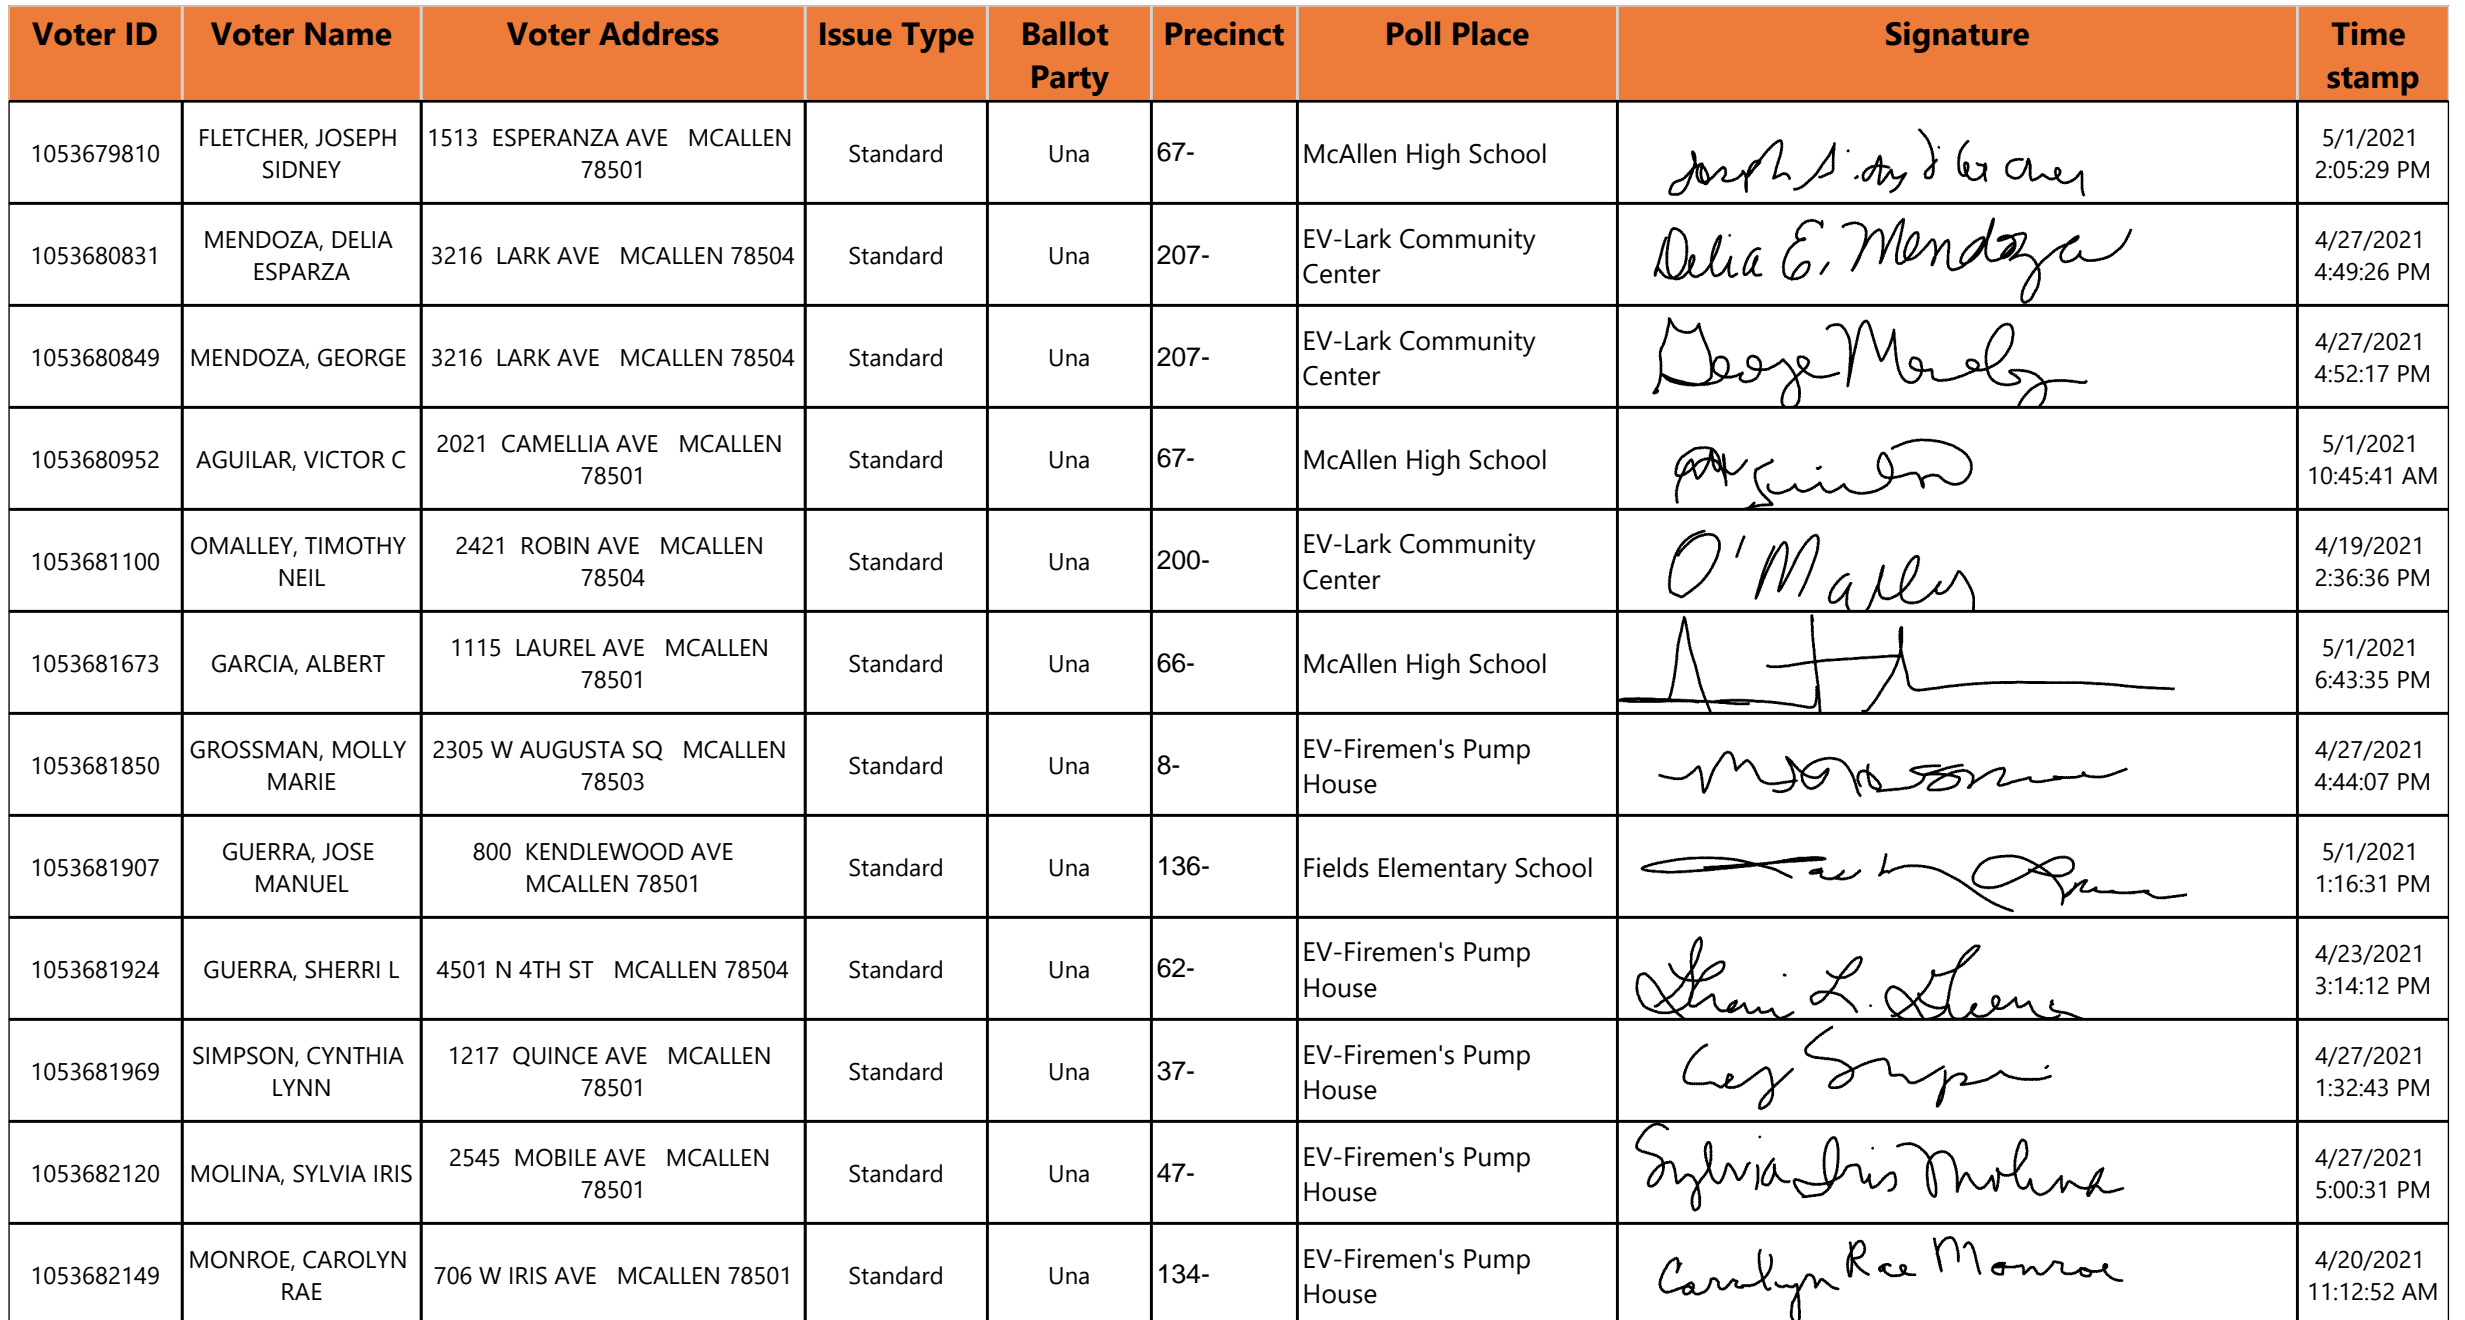 Voter ID Voter Name Voter Address Issue Type Ballot Party Precinct Poll Place Signature Time stamp
1053679810 FLETCHER, JOSEPH SIDNEY 1513 ESPERANZA AVE MCALLEN 78501 Standard Una 67- McAllen High School 5/1/2021 2:05:29 PM
1053680831 MENDOZA, DELIA ESPARZA 3216 LARK AVE MCALLEN 78504 Standard Una 207- EV-Lark Community Center Delia E. Mendoza 4/27/2021 4:49:26 PM
1053680849 MENDOZA, GEORGE 3216 LARK AVE MCALLEN 78504 Standard Una 207- EV-Lark Community Center George 4/27/2021 4:52:17 PM
1053680952 AGUILAR, VICTOR C 2021 CAMELLIA AVE MCALLEN 78501 Standard Una 67- McAllen High School 5/1/2021 10:45:41 AM
1053681100 OMALLEY, TIMOTHY NEIL 2421 ROBIN AVE MCALLEN 78504 Standard Una 200- EV-Lark Community Center O'Malley 4/19/2021 2:36:36 PM
1053681673 GARCIA, ALBERT 1115 LAUREL AVE MCALLEN 78501 Standard Una 66- McAllen High School 5/1/2021 6:43:35 PM
1053681850 GROSSMAN, MOLLY MARIE 2305 W AUGUSTA SQ MCALLEN 78503 Standard Una 8- EV-Firemen's Pump House 4/27/2021 4:44:07 PM
1053681907 GUERRA, JOSE MANUEL 800 KENDLEWOOD AVE MCALLEN 78501 Standard Una 136- Fields Elementary School 5/1/2021 1:16:31 PM
1053681924 GUERRA, SHERRI L 4501 N 4TH ST MCALLEN 78504 Standard Una 62- EV-Firemen's Pump House 4/23/2021 3:14:12 PM
1053681969 SIMPSON, CYNTHIA LYNN 1217 QUINCE AVE MCALLEN 78501 Standard Una 37- EV-Firemen's Pump House 4/27/2021 1:32:43 PM
1053682120 MOLINA, SYLVIA IRIS 2545 MOBILE AVE MCALLEN 78501 Standard Una 47- EV-Firemen's Pump House Sylvia Iris Molina 4/27/2021 5:00:31 PM
1053682149 MONROE, CAROLYN RAE 706 W IRIS AVE MCALLEN 78501 Standard Una 134- EV-Firemen's Pump House Carolyn Rae Monroe 4/20/2021 11:12:52 AM